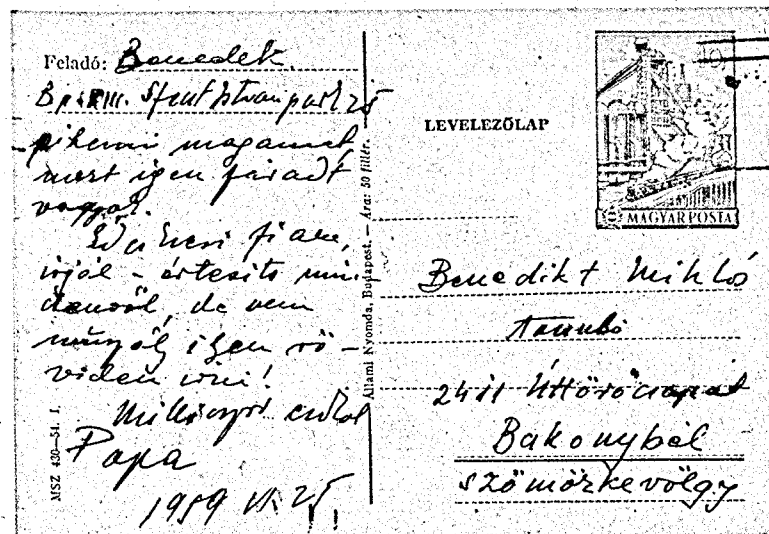 Feladó: Benedek
Bp. XIII. Szent István park 25
pihenni magamat,
mert igen fáradt
vagyok.
Édes kicsi fiam,
írjál - értesíts min-
denről, de nem
muszáj igen rö-
viden írni!
Milliószor csókol
Papa
1959 VI. 25
MSZ 430—54. I.
Állami Nyomda, Budapest. — Ára: 50 fillér.
LEVELEZŐLAP
MAGYAR POSTA
Benedikt Miklós
2411 Úttörőcsapat
Bakonybél
Szömörkevölgy